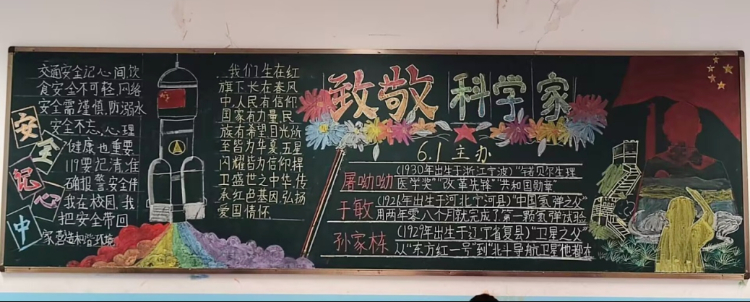 交通安全记心间,饮
食安全不可轻,网络
安全需谨慎,防溺水
安全不忘,心理
健康也重要
119要记清,准
确报警安全伴
我在校园,我
把安全带回
家,营造和谐环境
安全记心中
我们生在红
旗下长在春风
中,人民有信仰
国家有力量,民
族有希望目光所
至皆为华夏五星
闪耀皆为信仰捍
卫盛世之中华,传
承红色基因,弘扬
爱国情怀
致敬科学家
6.1主办
屠呦呦
(1930年出生于浙江宁波)"诺贝尔生理
医学奖""改革先锋""共和国勋章"
于敏
(1926年出生于河北宁河县)"中国氢弹之父"
用两年零八个月就完成了第一颗氢弹试验
孙家栋
(1929年出生于辽宁省复县)"卫星之父"
从"东方红一号"到"北斗导航卫星他都在